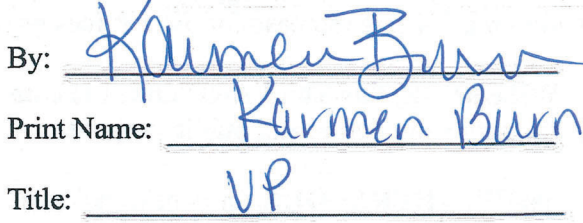 By: Karmen Burn
Print Name: Karmen Burn
Title: VP